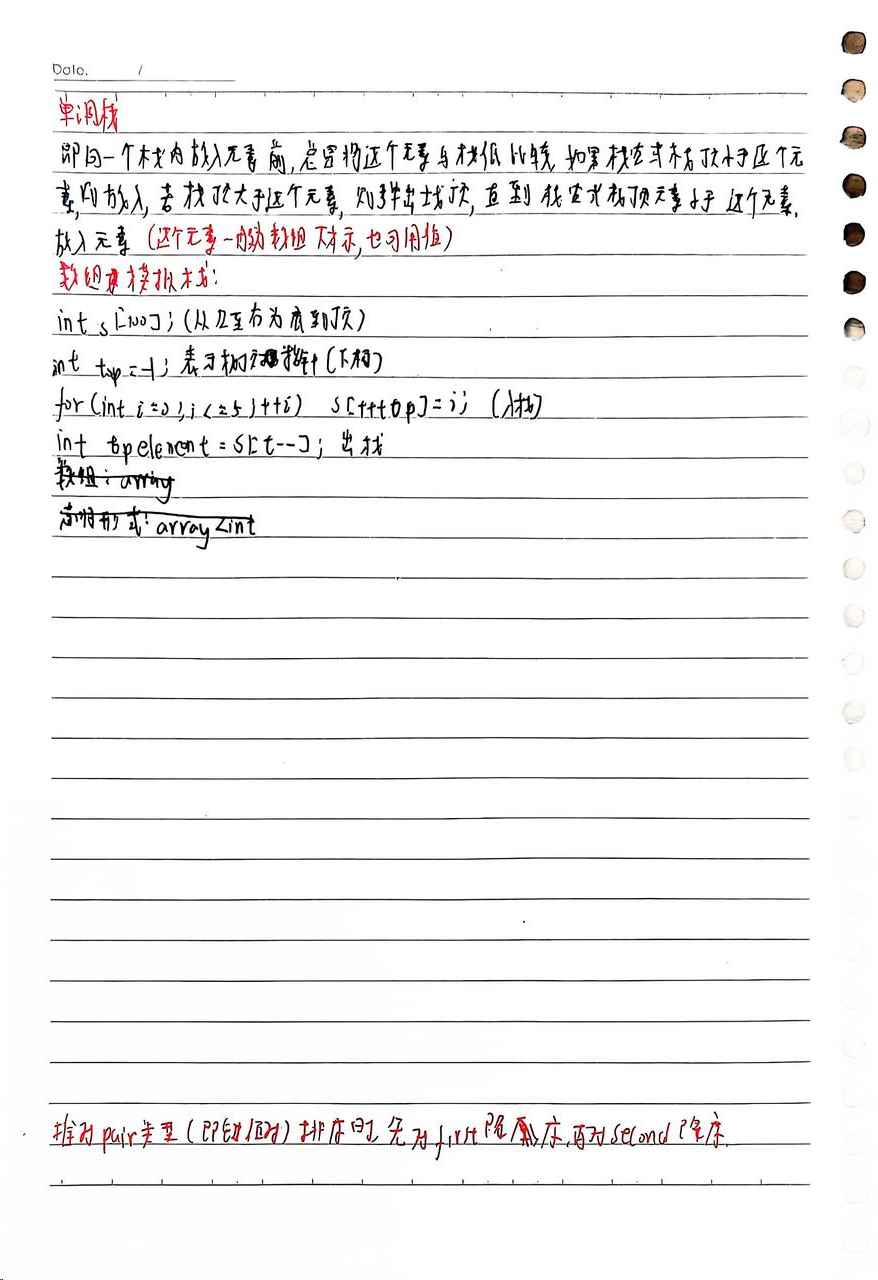 Date. /
单调栈
即向一个栈内放入元素前,总要将这个元素与栈低比较,如果栈空或栈顶小于这个元
素,则放入,若栈顶大于这个元素,则弹出栈顶,直到栈空或栈顶元素小于这个元素,
放入元素(这个元素一般为数组下标,也可用值)
数组模拟栈:
int s[100];(从左至右为底到顶)
int top=-1;表示栈顶指针(下标)
for(int i=0;i<=5;++i) s[++top]=i; (入栈)
int topelement=s[t--];出栈
数组:array
声明形式:array<int
堆对pair类型(即键值对)排序时,先对first降序,再对second降序.